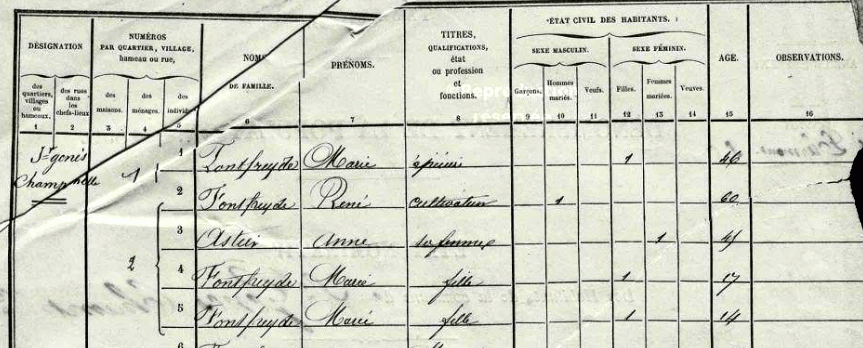 ÉTAT CIVIL DES HABITANTS.
DÉSIGNATION NUMÉROS PAR QUARTIER, VILLAGE, hameau ou rue, NOMS DE FAMILLE. PRÉNOMS. TITRES, QUALIFICATIONS, état ou profession et fonctions. SEXE MASCULIN. SEXE FÉMININ. AGE. OBSERVATIONS.
des quartiers, villages ou hameaux. des rues dans les chefs-lieux des maisons. des ménages. des individus Garçons. Hommes mariés. Veufs. Filles. Femmes mariées. Veuves.
1 2 3 4 5 6 7 8 9 10 11 12 13 14 15 16
St genès 1 1 1 Fontfreyde Marie épicière 1 46
Champanelle
2 Fontfreyde René cultivateur 1 60
2 3 Astier Anne sa femme 1 45
4 Fontfreyde Marie fille 1 17
5 Fontfreyde Marie fille 1 14
6